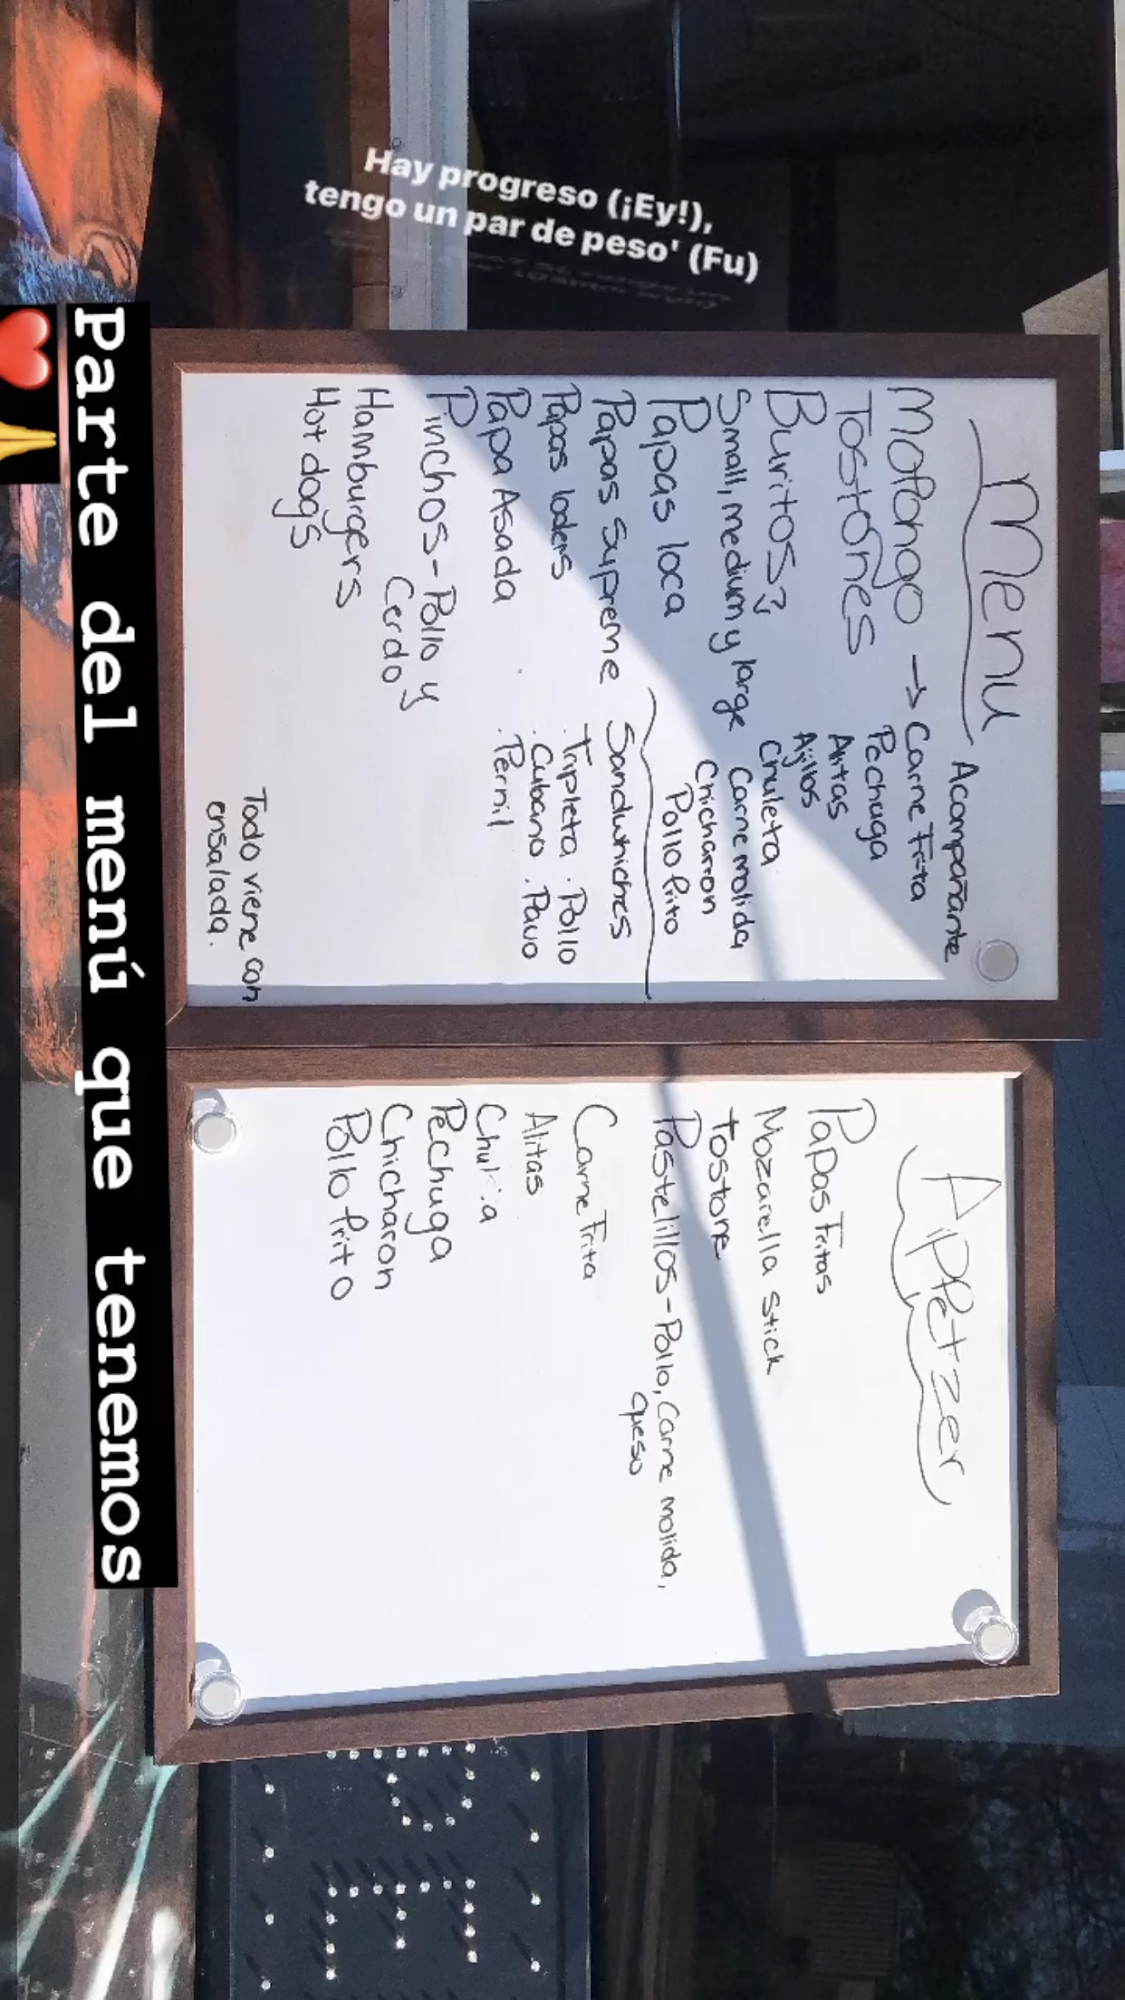 Hay progreso (¡Ey!),
tengo un par de peso' (Fu)
Menu
Mofongo →
Tostones
Buritos?
Small, medium y large
Papas loca
Papas Supreme
Papas loders
Papa Asada
Pinchos - Pollo y
Cerdo
Hamburgers
Hot dogs
Acompañante
Carne Frita
Pechuga
Alitas
Ajillos
Chuleta
Carne molida
Chicharron
Pollo frito
Sandwhiches
. Tripleta . Pollo
. Cubano . Pavo
. Pernil
Todo viene con
ensalada.
Appetzer
Papas Fritas
Mozarella stick
tostone
Pastelillos - Pollo, Carne molida,
queso
Carne Frita
Alitas
Pechuga
Chicharon
Pollo frito
Parte del menú que tenemos